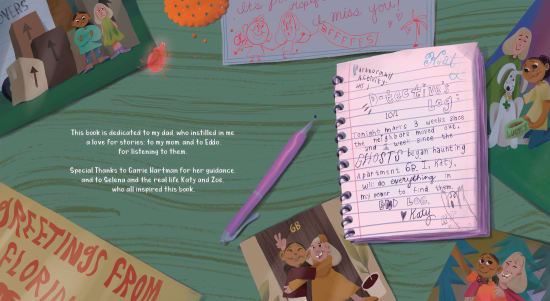 OVERS
I miss you!
BFFFFFS
This book is dedicated to my dad, who instilled in me
a love for stories; to my mom; and to Eddo
for listening to them.
Special Thanks to Carrie Hartman for her guidance
and to Selena and the real life Katy and Zoe,
who all inspired this book.
Paranormal
Activity
Detective's
Log:
10/2
Tonight marks 3 weeks since
the neighbors moved out,
and a week since the
GHOSTS began haunting
Apartment 6B. I, Katy,
will do everything in
my power to find them.
END LOG.
♥ Katy
GREETINGS FROM
FLORIDA
6B